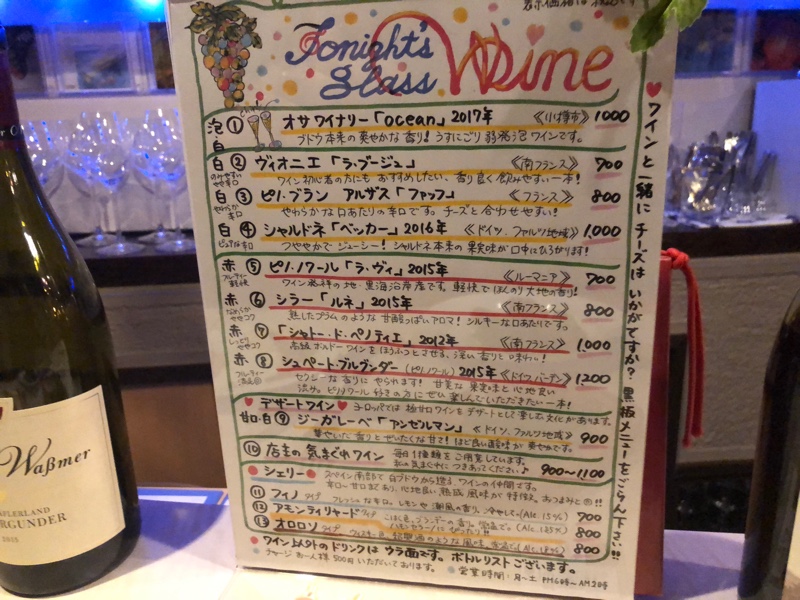 Tonight's
glass Wine
泡・白 ① オサワイナリー「ocean」2017年 《小樽市》 1000
ブドウ本来の爽やかな香り!うすにごり弱発泡ワインです。
白 ② ヴィオニエ「ラ・ブージュ」 《南フランス》 700
のみやすい やや辛口 ワイン初心者の方にもおすすめしたい、香り良く飲みやすい一本!
白 ③ ピノ・ブラン アルザス「ファッフ」 《フランス》 800
やわらか 辛口 やわらかな口あたりの辛口です。チーズと合わせやすい!
白 ④ シャルドネ「ベッカー」2016年 《ドイツ、ファルツ地域》 1,000
ピュアな辛口 つややかでジューシー!シャルドネ本来の果実味が口中にひろがります!
赤 ⑤ ピノ・ノワール「ラ・ヴィ」2015年 《ルーマニア》 700
フルーティー 軽快 ワイン発祥の地・黒海沿岸産です。軽快でほんのり大地の香り!
赤 ⑥ シラー「ルネ」2015年 《南フランス》 800
なめらか ややコク 熟したプラムのような甘酸っぱいアロマ!シルキーな口あたりです。
赤 ⑦ 「シャトー・ド・ペリティエ」2012年 《南フランス》 1,000
しっとり ややコク 高級ボルドーワインをほうふつとさせる、深い香りと味わい!
赤 ⑧ シュペートブルグンダー(ピノ・ノワール)2015年 《ドイツ、バーデン》 1200
セクシーな香りにやられます!甘美な果実味と心地良い
渋み。ピノ・ノワール好きの方にぜひ楽しんでいただきたい一本!
♥デザートワイン♥ ヨーロッパでは極甘口ワインをデザートとして楽しむ文化があります。
甘口・白 ⑨ ジーガレーベ「アンゼルマン」 《ドイツ、ファルツ地域》 900
華やいだ香りとぜいたくな甘さ!ほど良い酸味が爽やかです。
⑩ 店主の気まぐれワイン 毎日1種類をご用意しています。
私の気まぐれにつきあってください♪ 900〜1100
シェリー スペイン南部で白ブドウから造る、ワインの仲間です。
辛口〜甘口まであり、心地良い熟成風味が特徴。おつまみと◎!!
⑪ フィノ タイプ フレッシュな辛口。レモンや潮風の香り。冷やして。(Alc.15%) 700
⑫ アモンティリャード タイプ (Alc.18.5%) 800
⑬ オロロソ タイプ 800
ワイン以外のドリンクはウラ面です。ボトルリストございます。
チャージ お一人様500円いただいております。 営業時間:月〜土 PM6時〜AM2時
♥ワインと一緒にチーズはいかがですか?黒板メニューをごらん下さい!!
Waßmer
2015